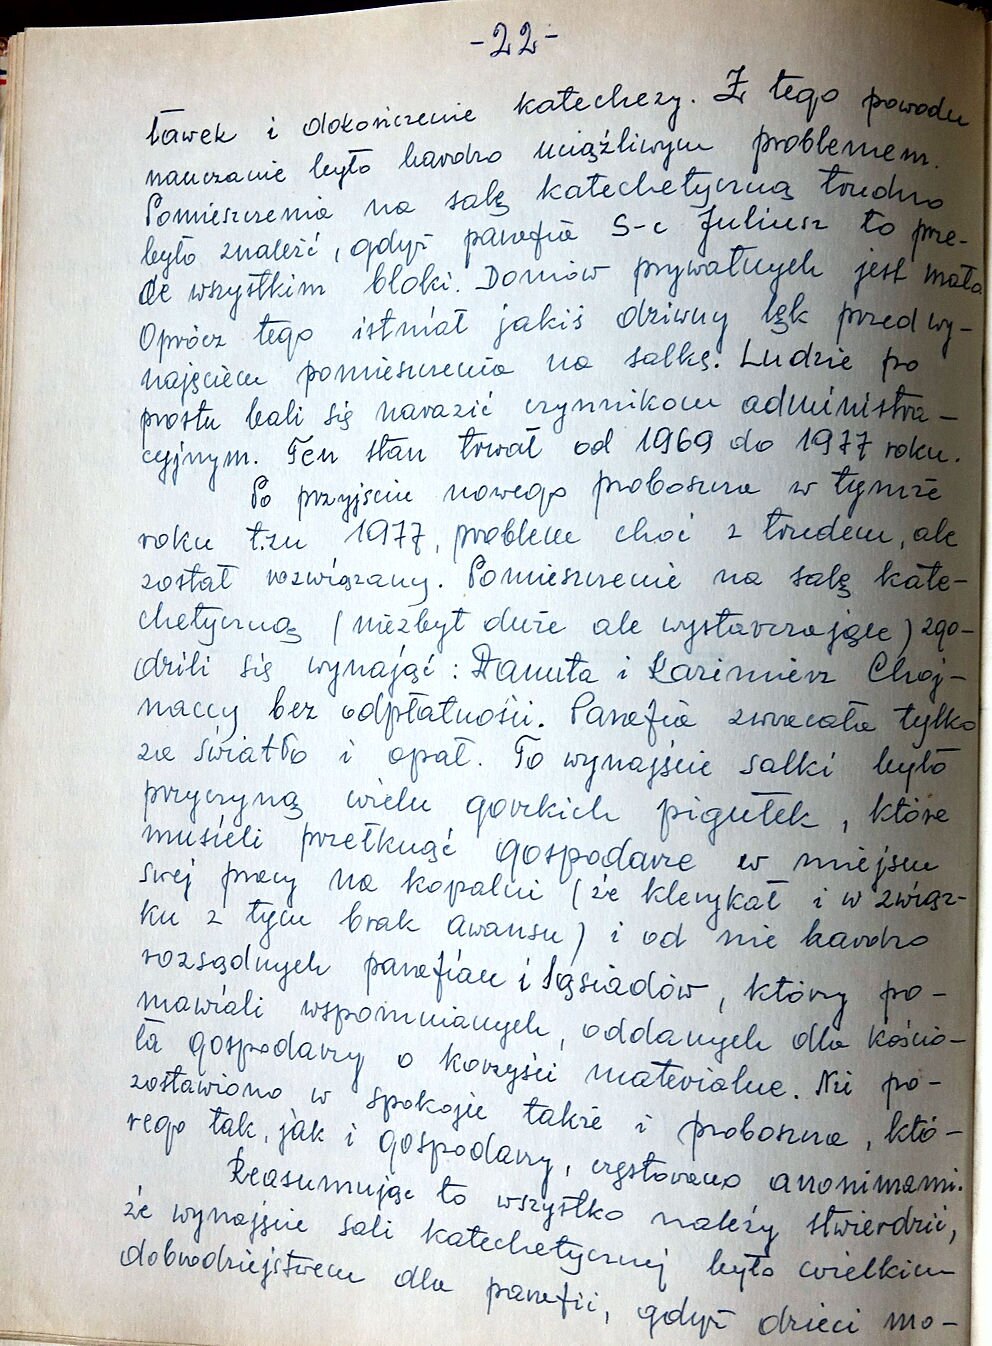 -22-
ławek i dokończenie katechezy. Z tego powodu
nauczanie było bardzo uciążliwym problemem.
Pomieszczenia na salę katechetyczną trudno
było znaleźć, gdyż parafia S-c Juliusz to prze-
de wszystkim bloki. Domów prywatnych jest mało.
Oprócz tego istniał jakiś dziwny lęk przed wy-
najęciem pomieszczenia na salkę. Ludzie po
prostu bali się narazić czynnikom administra-
cyjnym. Ten stan trwał od 1969 do 1977 roku.
Po przyjściu nowego proboszcza w tymże
roku t.zn 1977, problem choć z trudem, ale
został rozwiązany. Pomieszczenie na salę kate-
chetyczną (niezbyt duże ale wystarczające) zgo-
dzili się wynająć: Danuta i Kazimierz Choj-
naccy bez odpłatności. Parafia zwracała tylko
za światło i opał. To wynajęcie salki było
przyczyną wielu gorzkich pigułek, które
musieli przełknąć gospodarze w miejscu
swej pracy na kopalni (że klerykał i w związ-
ku z tym brak awansu) i od nie bardzo
rozsądnych parafian i sąsiadów, którzy po-
mawiali wspomnianych, oddanych dla kościo-
ła gospodarzy o korzyści materialne. Nie po-
zostawiono w spokoju także i proboszcza, któ-
rego tak, jak i gospodarzy, częstowano anonimami.
Reasumując to wszystko należy stwierdzić,
że wynajęcie sali katechetycznej było wielkim
dobrodziejstwem dla parafii, gdyż dzieci mo-